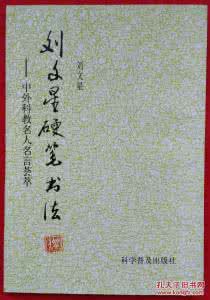 刘文星
刘文星硬笔书法
——中外科教名人名言荟萃
科学普及出版社